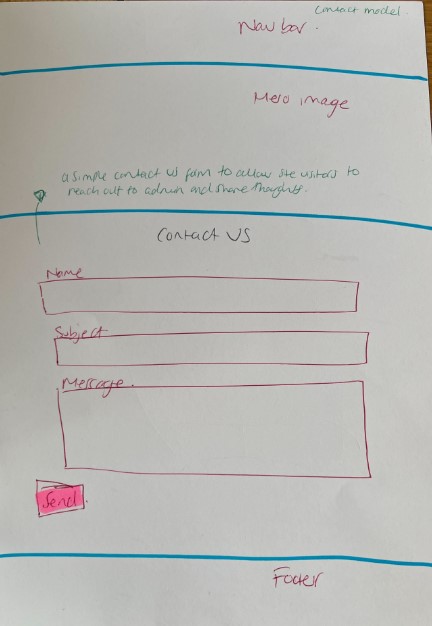 Contact model.
Nav bar.
Hero image
a simple contact us form to allow site visitors to
reach out to admin and share thoughts.
Contact US
Name
Subject
Message.
Send
Footer